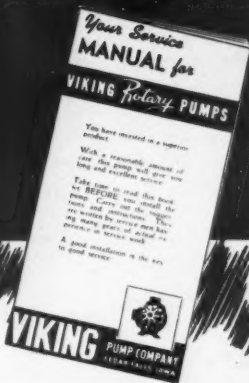 Your Service
MANUAL for
VIKING Rotary PUMPS
You have invested in a superior
product
With a reasonable amount of
care this pump will give you
long and excellent service
Take time to read this book
let BEFORE you install the
pump. Carry out the sugges
tions and instructions. They
are written by service men hav
ing many years of actual ex
perience in service work
A good installation is the key
to good service
VIKING PUMP COMPANY
CEDAR FALLS, IOWA